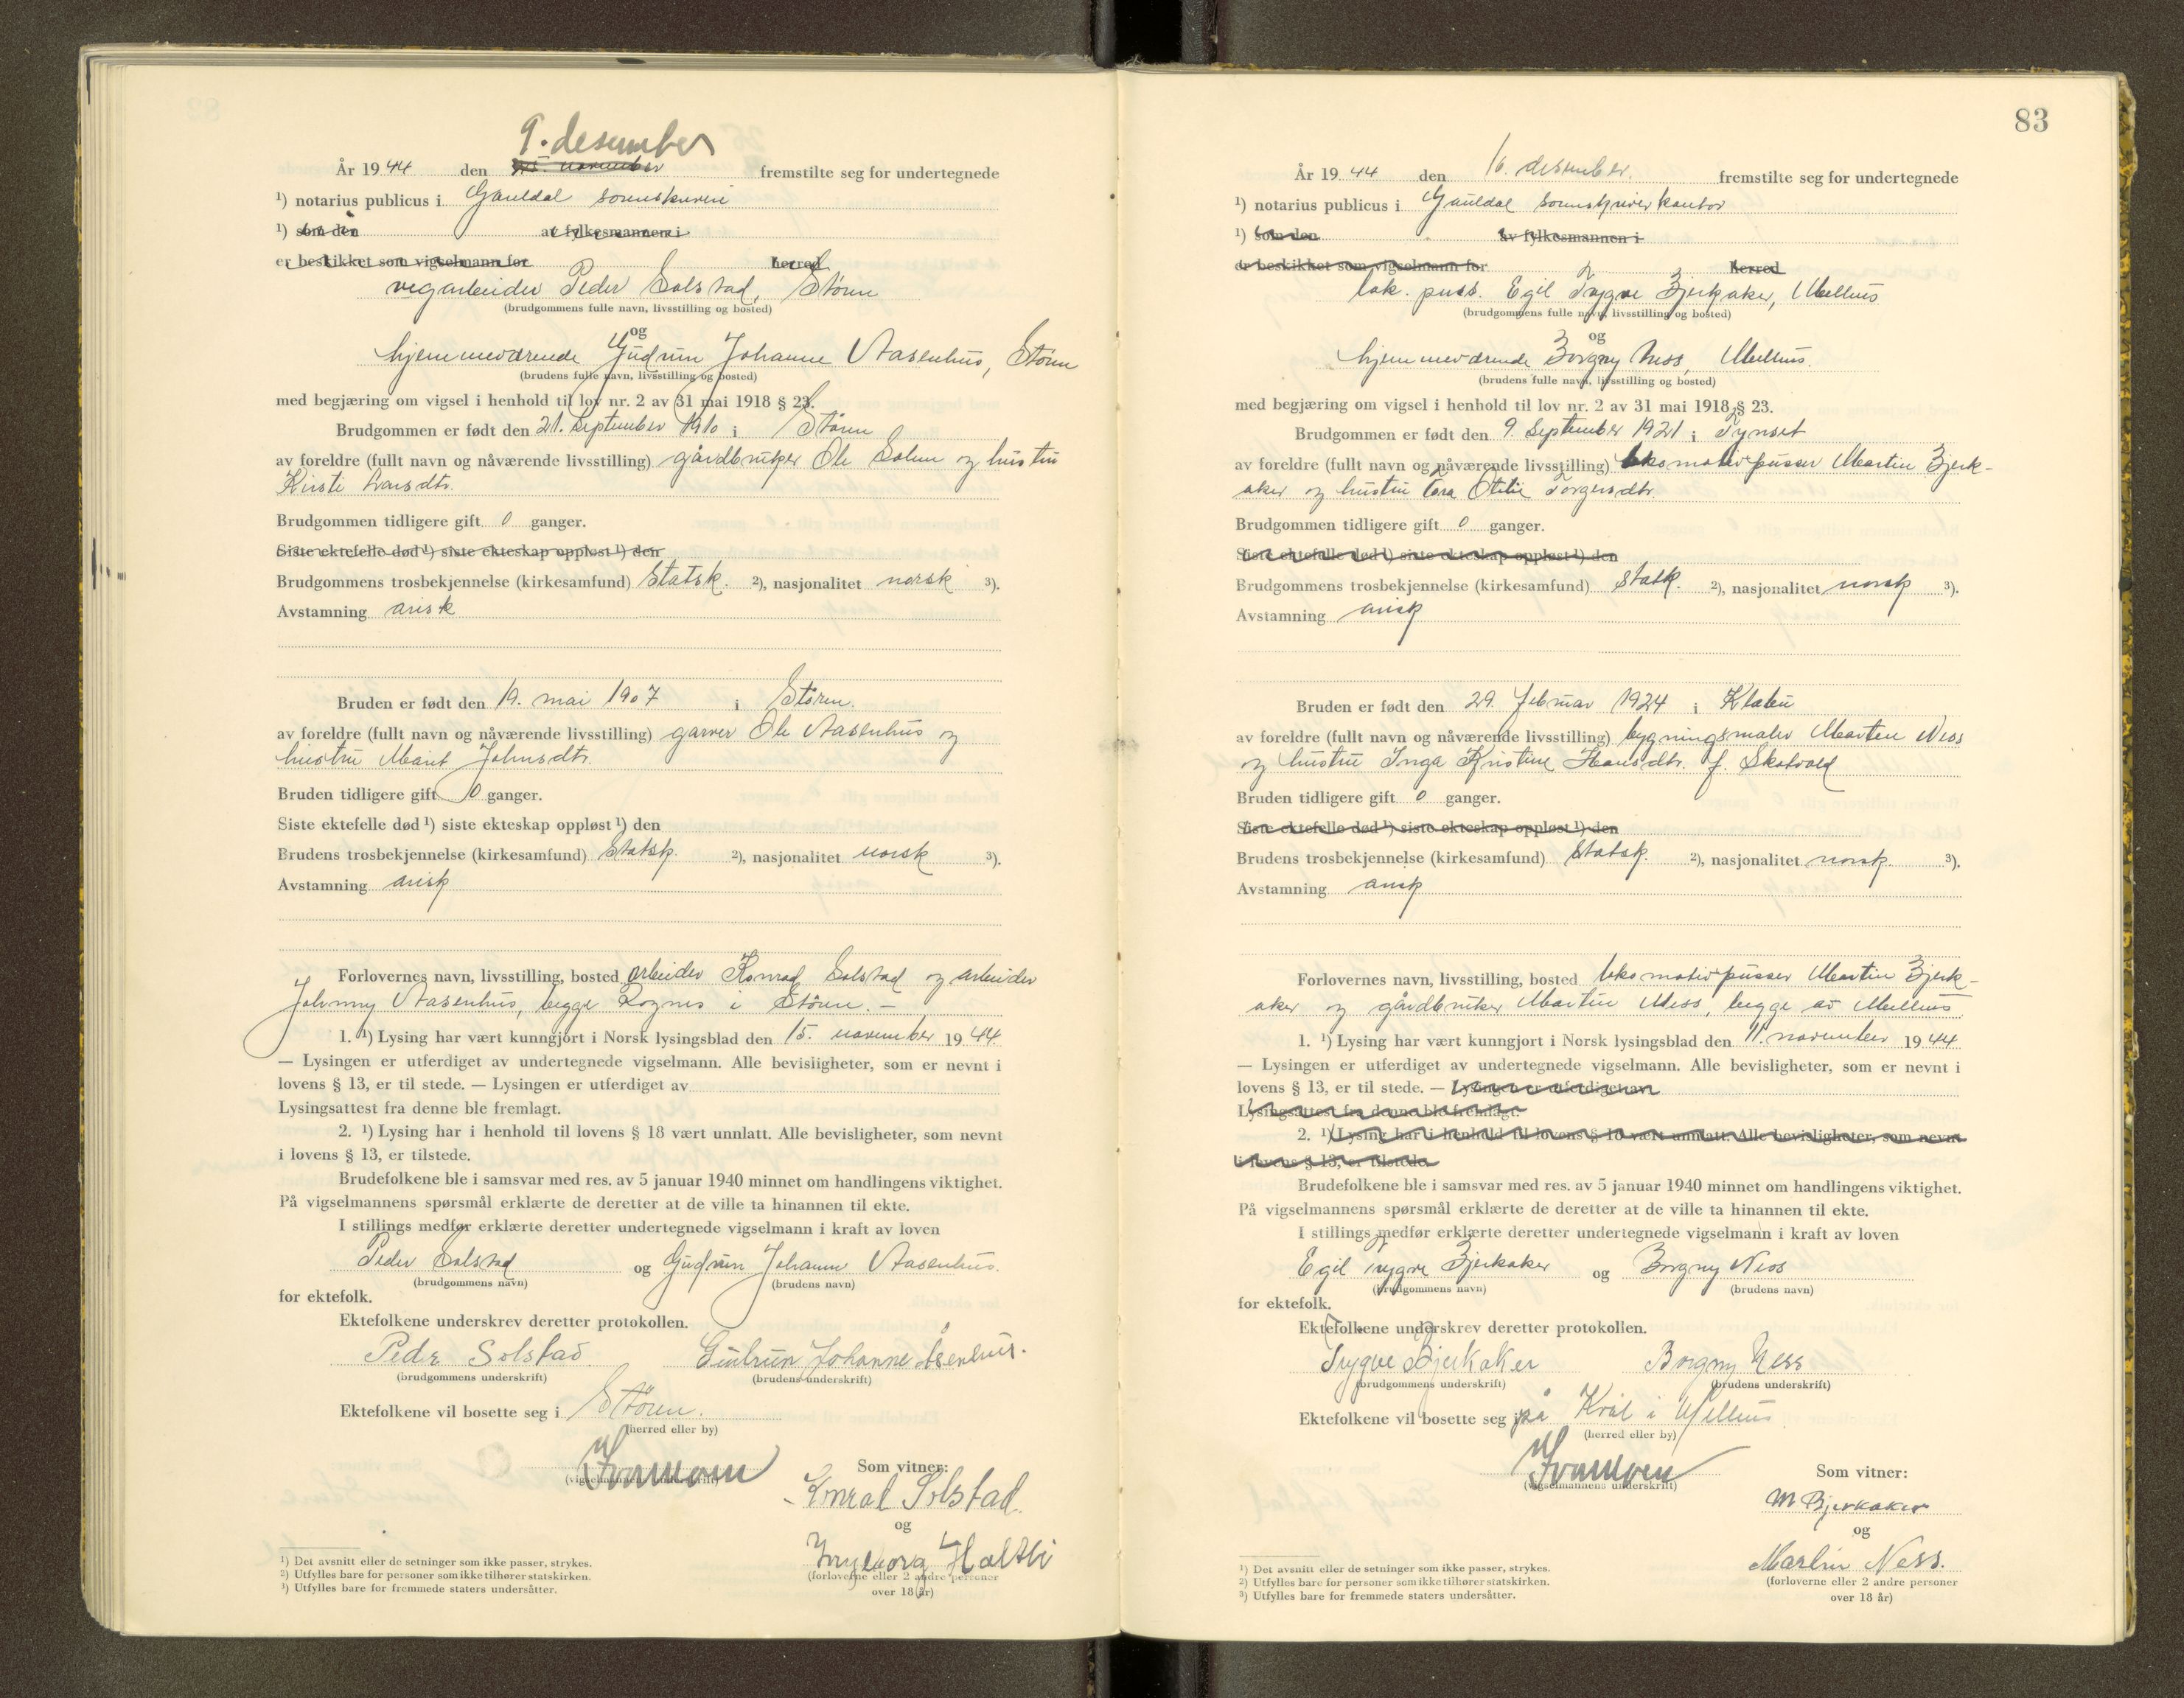 9. desember
År 1944 den fremstilte seg for undertegnede
¹) notarius publicus i Gauldal sorenskriveri
¹) som den av fylkesmannen i
er beskikket som vigselmann for herred
vegarbeider Peder Solstad, Støren
(brudgommens fulle navn, livsstilling og bosted)
og
hjemmeværende Gudrun Johanne Aasenhus, Støren
(brudens fulle navn, livsstilling og bosted)
med begjæring om vigsel i henhold til lov nr. 2 av 31 mai 1918 § 23.
Brudgommen er født den 21. september 1910 i Støren
av foreldre (fullt navn og nåværende livsstilling) gårdbruker Ole Solem og hustru
Kirsti Larsdtr.
Brudgommen tidligere gift 0 ganger.
Siste ektefelle død ¹) siste ekteskap oppløst ¹) den
Brudgommens trosbekjennelse (kirkesamfund) Statsk. ²), nasjonalitet norsk ³).
Avstamning arisk
Bruden er født den 19. mai 1907 i Støren.
av foreldre (fullt navn og nåværende livsstilling) garver Ole Aasenhus og
hustru Marit Johnsdtr.
Bruden tidligere gift 0 ganger.
Siste ektefelle død ¹) siste ekteskap oppløst ¹) den
Brudens trosbekjennelse (kirkesamfund) Statsk. ²), nasjonalitet norsk ³).
Avstamning arisk
Forlovernes navn, livsstilling, bosted arbeider Konrad Solstad og arbeider
Johnny Aasenhus, begge Rognes i Støren. –
1. ¹) Lysing har vært kunngjort i Norsk lysingsblad den 15. november 1944
— Lysingen er utferdiget av undertegnede vigselmann. Alle bevisligheter, som er nevnt i
lovens § 13, er til stede. — Lysingen er utferdiget av
Lysingsattest fra denne ble fremlagt.
2. ¹) Lysing har i henhold til lovens § 18 vært unnlatt. Alle bevisligheter, som nevnt
i lovens § 13, er tilstede.
Brudefolkene ble i samsvar med res. av 5 januar 1940 minnet om handlingens viktighet.
På vigselmannens spørsmål erklærte de deretter at de ville ta hinannen til ekte.
I stillings medfør erklærte deretter undertegnede vigselmann i kraft av loven
Peder Solstad og Gudrun Johanne Aasenhus.
(brudgommens navn) (brudens navn)
for ektefolk.
Ektefolkene underskrev deretter protokollen.
Peder Solstad. Gudrun Johanne Åsenhus.
(brudgommens underskrift) (brudens underskrift)
Ektefolkene vil bosette seg i Støren.
(herred eller by)
(vigselmannens underskrift)
Som vitner:
Konrad Solstad.
og
Ingeborg Holthi
(forloverne eller 2 andre personer
over 18 år)
¹) Det avsnitt eller de setninger som ikke passer, strykes.
²) Utfylles bare for personer som ikke tilhører statskirken.
³) Utfylles bare for fremmede staters undersåtter.
83
År 1944 den 16. desember. fremstilte seg for undertegnede
¹) notarius publicus i Gauldal sorenskriverkontor
¹) som den av fylkesmannen i
er beskikket som vigselmann for herred
lok. puss. Egil Trygve Bjerkaker, Melhus
(brudgommens fulle navn, livsstilling og bosted)
og
hjemmeværende Borgny Ness, Melhus.
(brudens fulle navn, livsstilling og bosted)
med begjæring om vigsel i henhold til lov nr. 2 av 31 mai 1918 § 23.
Brudgommen er født den 9. september 1921 i Tynset
av foreldre (fullt navn og nåværende livsstilling) lokomotivpusser Martin Bjerk-
aker og hustru Tora Otelie Torgersdtr.
Brudgommen tidligere gift 0 ganger.
Siste ektefelle død ¹) siste ekteskap oppløst ¹) den
Brudgommens trosbekjennelse (kirkesamfund) Statk. ²), nasjonalitet norsk ³).
Avstamning arisk
Bruden er født den 29. februar 1924 i Klæbu
av foreldre (fullt navn og nåværende livsstilling) bygningsmaler Marten Ness
og hustru Inga Kristine Hansdtr. f. Skotvold
Bruden tidligere gift 0 ganger.
Siste ektefelle død ¹) siste ekteskap oppløst ¹) den
Brudens trosbekjennelse (kirkesamfund) Statsk. ²), nasjonalitet norsk. ³).
Avstamning arisk
Forlovernes navn, livsstilling, bosted lokomotivpusser Martin Bjerk-
aker og gårdbruker Martin Ness, begge av Melhus.
1. ¹) Lysing har vært kunngjort i Norsk lysingsblad den 11. november 1944
— Lysingen er utferdiget av undertegnede vigselmann. Alle bevisligheter, som er nevnt i
lovens § 13, er til stede. — Lysingen er utferdiget av
Lysingsattest fra denne ble fremlagt.
2. ¹) Lysing har i henhold til lovens § 18 vært unnlatt. Alle bevisligheter, som nevnt
i lovens § 13, er tilstede.
Brudefolkene ble i samsvar med res. av 5 januar 1940 minnet om handlingens viktighet.
På vigselmannens spørsmål erklærte de deretter at de ville ta hinannen til ekte.
I stillings medfør erklærte deretter undertegnede vigselmann i kraft av loven
Egil Trygve Bjerkaker og Borgny Ness
(brudgommens navn) (brudens navn)
for ektefolk.
Ektefolkene underskrev deretter protokollen.
Trygve Bjerkaker Borgny Ness
(brudgommens underskrift) (brudens underskrift)
Ektefolkene vil bosette seg på Kvål i Melhus
(herred eller by)
(vigselmannens underskrift)
Som vitner:
M Bjerkaker
og
Martin Ness.
(forloverne eller 2 andre personer
over 18 år)
¹) Det avsnitt eller de setninger som ikke passer, strykes.
²) Utfylles bare for personer som ikke tilhører statskirken.
³) Utfylles bare for fremmede staters undersåtter.